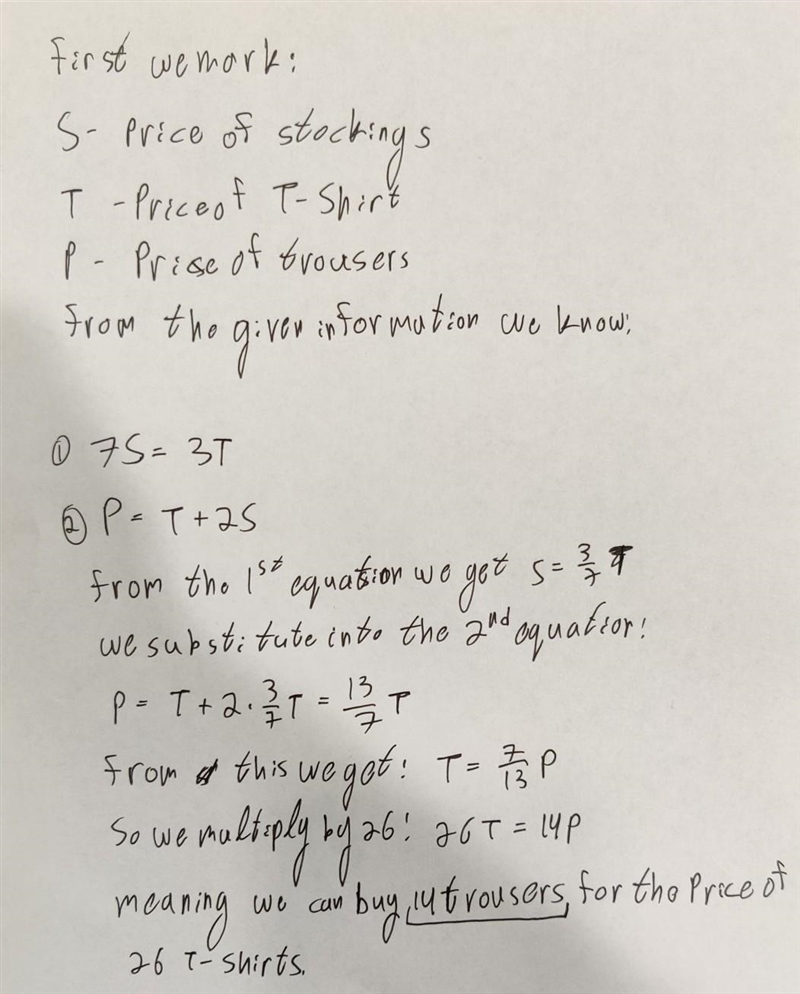 First we mark:
S- Price of stockings
T - Price of T-Shirt
P - Prise of trousers
From the given information we know:
① 7S = 3T
② P = T + 2S
From the 1st equation we get S = 3/7 T
we substitute into the 2nd equation:
P = T + 2 · 3/7 T = 13/7 T
From this we get: T = 7/13 P
So we multiply by 26: 26T = 14P
meaning we can buy 14 trousers, for the Price of
26 T-shirts.